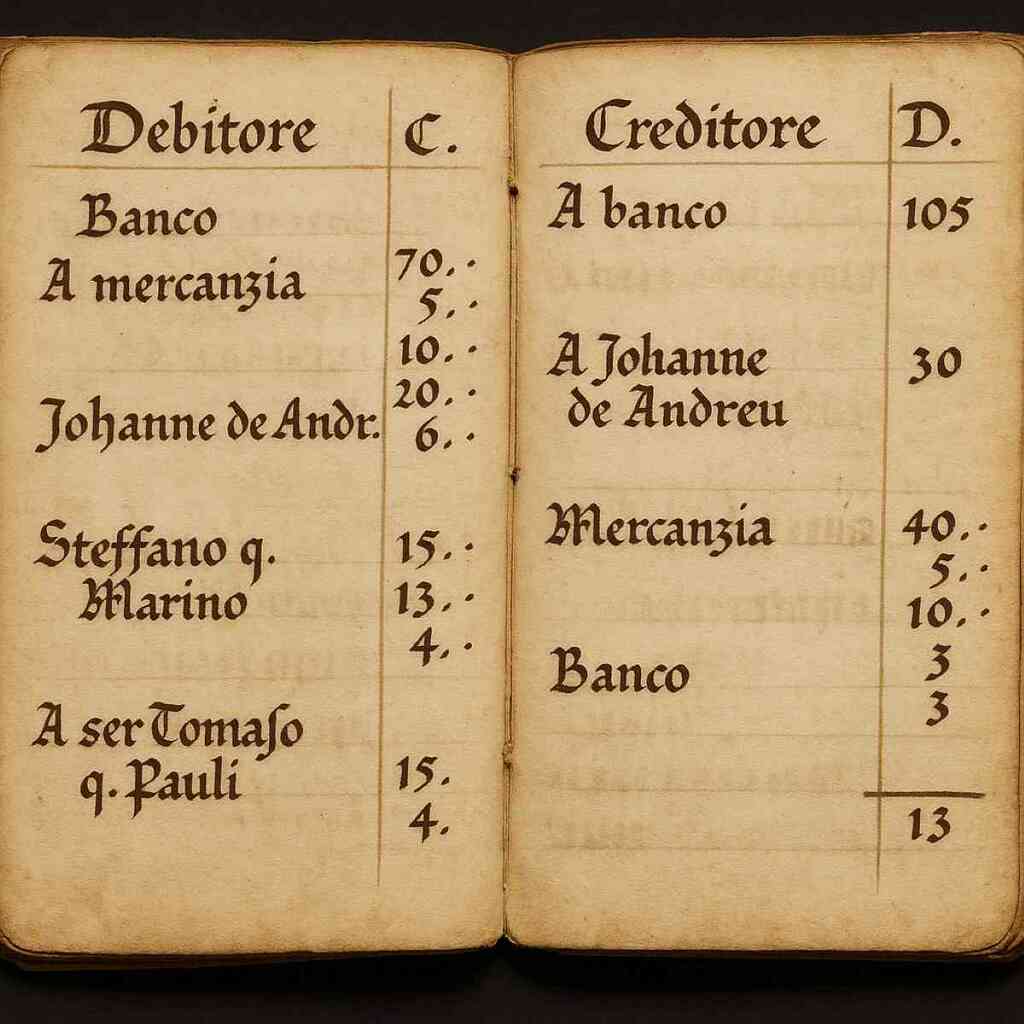 Debitore C.
Banco
A mercanzia 70.·
5.·
10.·
20.·
Johanne de Andr. 6.·
Steffano q. 15.·
Marino 13.·
4.·
A ser Tomaſo
q. Pauli 15.
4.
Creditore D.
A banco 105
A Johanne 30
de Andreu
Mercanzia 40.·
5.·
10.·
Banco 3
3
13